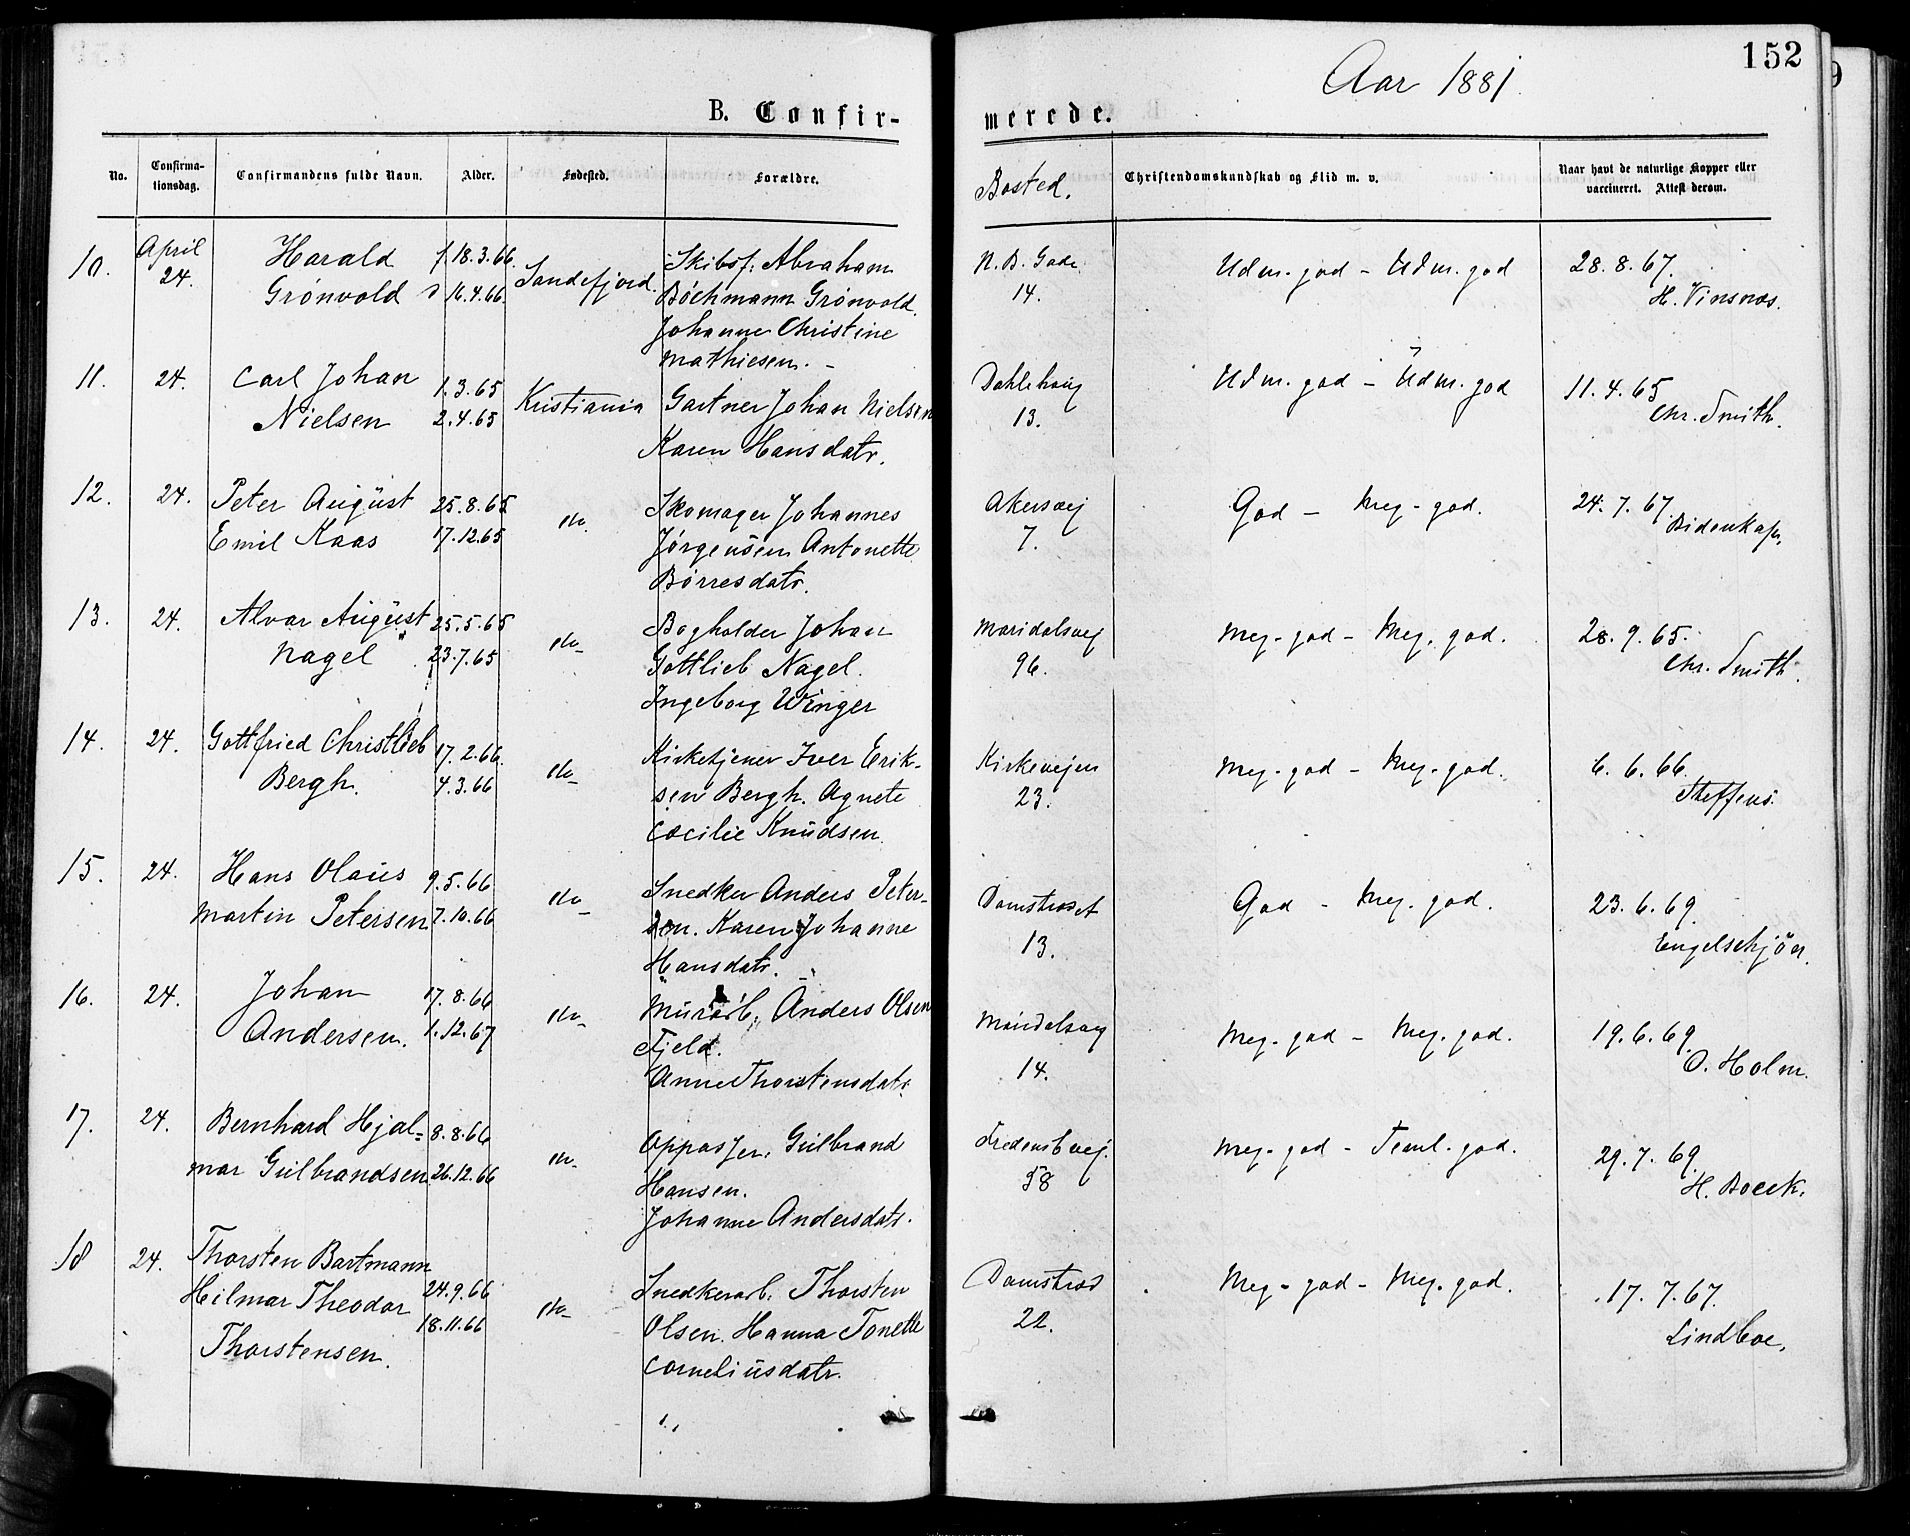 152
Aar 1881.
B. Confir-
merede.
No.
Confirma-
tionsdag.
Confirmandens fulde Navn.
Alder.
Fødested.
Forældre.
Bosted.
Christendomskundskab og Flid m. v.
Naar havt de naturlige Kopper eller
vaccineret. Attest derom.
10. April 24. Harald Grönvold f. 18.3.66. d 16.4.66. Sandefjord. Skibsf. Abraham
Böchmann Grönvold.
Johanne Christine
Mathiesen. -
N. B. Gade 14. Udm. god - Udm. god 28.8.67. H. Vinsnæs.
11. 24. Carl Johan 1.3.65 Kristiania Gartner Johan Nielsen
Nielsen 2.4.65 Karen Hansdatr.
Dahlehaug 13. Udm. god - Udm. god 11.4.65 Chr. Smith.
12. 24. Peter August 25.8.65 do. Skomager Johannes
Emil Kaas 17.12.65 Jörgensen Antonette
Börresdatr.
Akersvej 7. God - Meg. god. 24.7.67. Bidenkap.
13. 24. Alvar August 25.5.65 do Bogholder Johan
Nagel 23.7.65 Gottlieb Nagel.
Ingeborg Winger
Maridalsvej 96. Meg. god - Meg. god. 28.9.65. Chr. Smith.
14. 24. Gottfried Christlieb 17.2.66. do Kirketjener Iver Erik-
Bergh. 4.3.66 sen Bergh. Agnete
Cæcilie Knudsen.
Kirkevejen 23. Meg. god - Meg. god. 6.6.66. Steffens.
15. 24. Hans Olaus 9.5.66 do Snedker Anders Peter-
Martin Petersen 7.10.66 sen. Karen Johanne
Hansdatr.
Damstrædet 13. God - Meg. god. 23.6.69. Engelschjön.
16. 24. Johan 17.8.66 do Murarb. Anders Olsen
Andersen. 1.12.67 Fjeld.
Anne Thorstensdatr.
14. Meg. god - Meg. god. 19.6.69. O. Holm.
17. 24. Bernhard Hjal= 8.8.66 do Oppasser. Gulbrand
mar Gulbrandsen 26.12.66 Hansen.
Johanne Andersdatr.
Fredensbvej. 58 Meg. god - Teml. god. 29.7.69. H. Boeck.
18 24. Thorsten Bartmann
Hilmar Theodor 24.9.66 do Snedkerarb. Thorsten
Thorstensen. 18.11.66 Olsen. Hanna Tonette
Corneliusdatr.
Damstræd 22. Meg - god - Meg. god. 17.7.67. Lindboe.